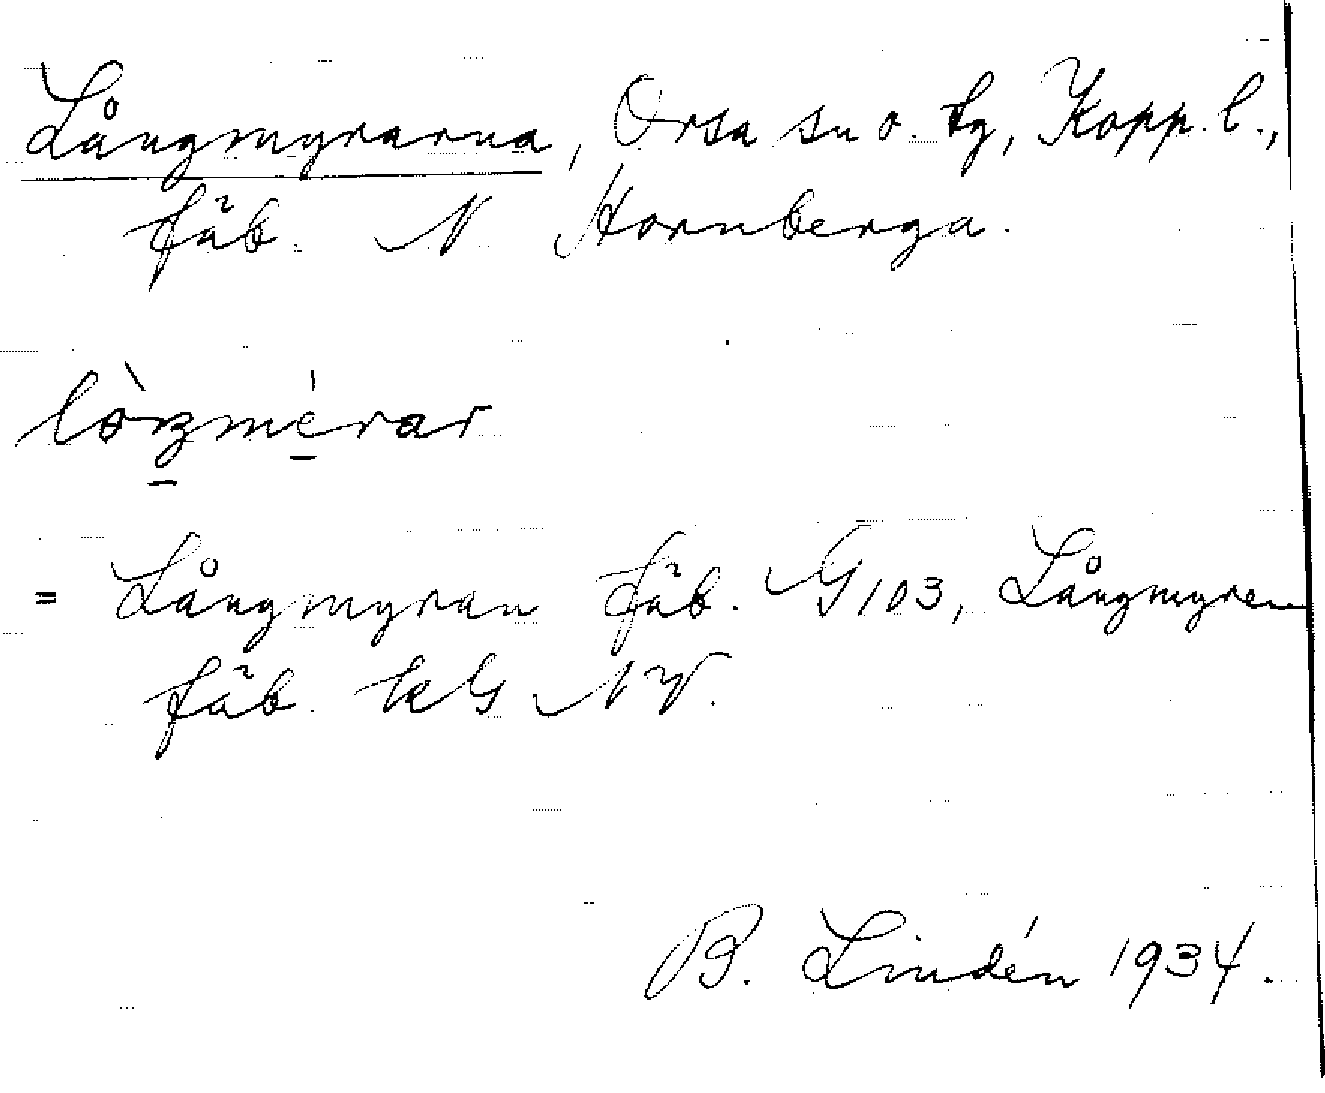 Långmyrarna, Orsa sn o. tg, Kopp. l.,
fäb. N Hornberga.
= Långmyran fäb. G103, Långmyren
fäb. kG NV.
B. Lindén 1934.